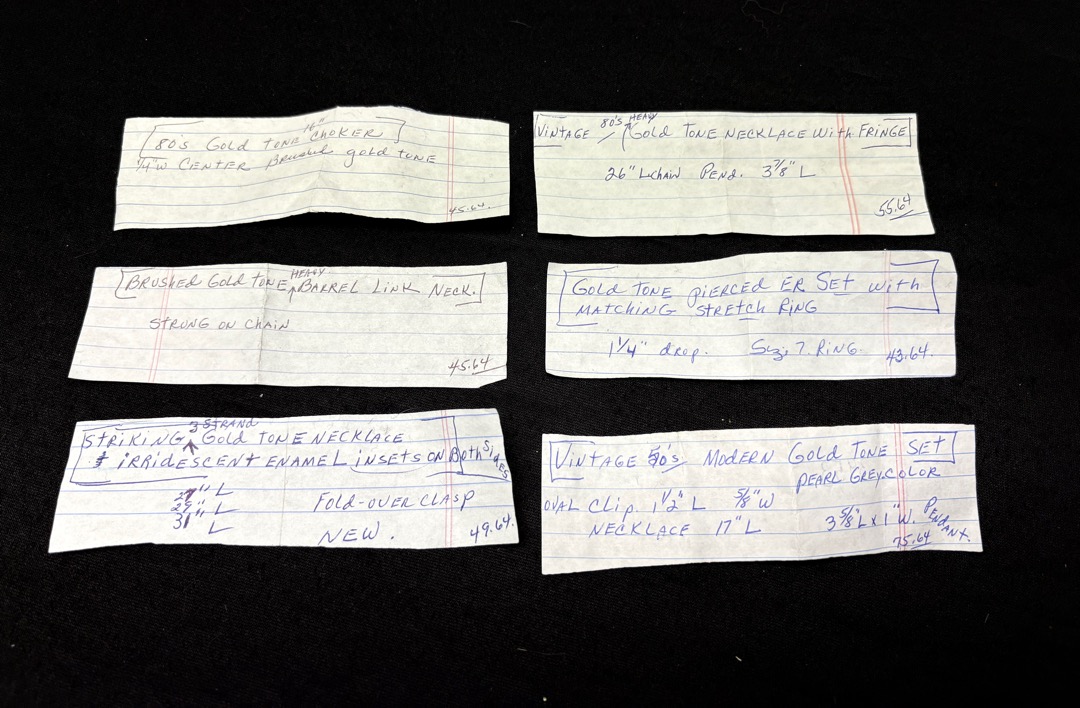 [80's Gold TONE 16" CHOKER]
1/4"W CENTER Brushed gold TONE
45.64.
[VINTAGE 80'S HEAVY Gold TONE NECKLACE With FRINGE]
26" L chain Pend. 3 7/8" L
55.64
[BRUSHED Gold TONE HEAVY BARREL LINK NECK.]
STRUNG ON CHAIN
45.64
[Gold TONE PIERCED ER SET with
MATCHING STRETCH RING]
1 1/4" drop. Siz. 7. RING. 43.64.
[STRIKING 3 STRAND Gold TONE NECKLACE
& IRRIDESCENT ENAMEL INSETS ON Both Sides]
27" L
29" L
31" L
FOLD-OVER CLASP
NEW.
49.64.
[VINTAGE 's MODERN Gold TONE SET]
PEARL GREY COLOR
OVAL Clip. 1 1/2" L 5/8" W
NECKLACE 17" L 3 5/8" L x 1" W. PENDANT.
75.64